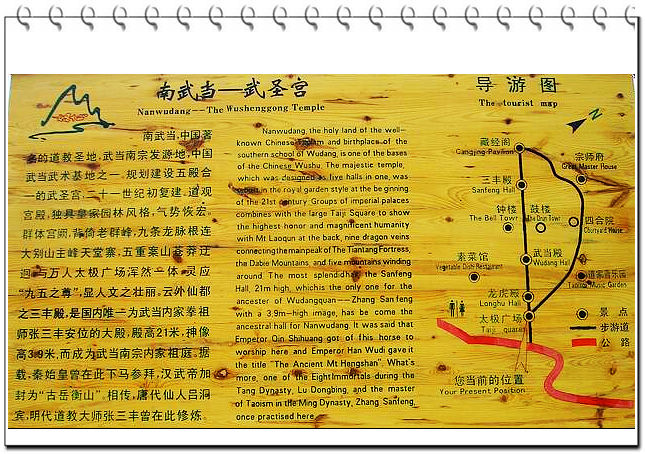 南武当—武圣宫
Nanwudang---The Wushenggong Temple
南武当,中国著
名的道教圣地,武当南宗发源地,中国
武当武术基地之一,规划建设五殿合
一的武圣宫,二十一世纪初复建,道观
宫殿,独具皇家园林风格,气势恢宏,
群体宫阙,背倚老群峰,九条龙脉根连
大别山主峰天堂寨,五重案山苍莽迂
迴,与万人太极广场浑然一体,灵应
“九五之尊”,显人文之壮丽。云外仙都
之三丰殿,是国内唯一为武当内家拳祖
师张三丰安位的大殿,殿高21米,神像
高3.9米,而成为武当南宗内家祖庭。据
载,秦始皇曾在此下马参拜,汉武帝加
封为“古岳衡山”,相传,唐代仙人吕洞
宾,明代道教大师张三丰曾在此修炼。
Nanwudang, the holy land of the well-
known Chinese and birthplace of the
southern school of Wudang, is one of the bases
of the Chinese Wushu. The majestic temple,
which was designed as five halls in one, was
rebuilt in the royal garden style at the beginning
of the 21st century. Groups of imperial palaces
combines with the large Taiji Square to show
the highest honor and magnificent humanity
with Mt Laoqun at the back, nine dragon veins
connecting the main peak of The Tiantang Fortress,
the Dabie Mountains, and five mountains winding
around. The most splendid hall, the Sanfeng
Hall, 21m high, which is the only one for the
ancester of Wudangquan---Zhang Sanfeng
with a 3.9m-high image, has be come the
ancestral hall for Nanwudang. It was said that
Emperor Qin Shihuang got of f his horse to
worship here and Emperor Han Wudi gave it
the title "The Ancient Mt Hengshan". What's
more, one of the Eight Immortals during the
Tang Dynasty, Lu Dongbing, and the master
of Taoism in the Ming Dynasty, Zhang Sanfeng,
once practised here.
导游图
The tourist map
藏经阁
Cangjing Pavilion
宗师府
Great Master House
三丰殿
Sanfeng Hall
钟楼
The Bell Tower
鼓楼
The Drum Tower
四合院
Courtyard House
素菜馆
Vegetable Dish Restaurant
武当殿
Wudang Hall
道家音乐园
Taoism Music Garden
龙虎殿
Longhu Hall
太极广场
Taiji
景点
步游道
公路
您当前的位置
Your Present Position
N